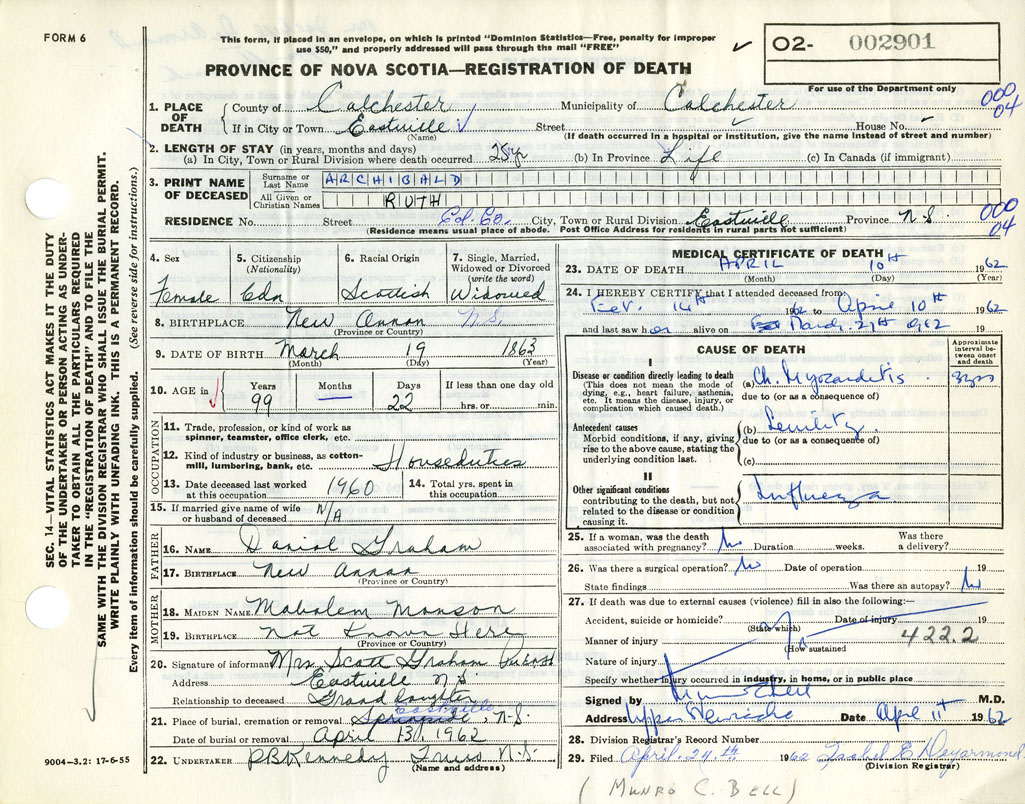 FORM 6
This form, if placed in an envelope, on which is printed "Dominion Statistics—Free, penalty for improper
use $50," and properly addressed will pass through the mail "FREE"
O2- 002901
PROVINCE OF NOVA SCOTIA—REGISTRATION OF DEATH
For use of the Department only
000
04
1. PLACE OF DEATH
County of Colchester Municipality of Colchester
If in City or Town Eastville Street House No.
(Name) (If death occurred in a hospital or institution, give the name instead of street and number)
2. LENGTH OF STAY (in years, months and days)
(a) In City, Town or Rural Division where death occurred 25 yr (b) In Province Life (c) In Canada (if immigrant)
3. PRINT NAME OF DECEASED
Surname or Last Name ARCHIBALD
All Given or Christian Names RUTH
RESIDENCE No. Street Col. Co. City, Town or Rural Division Eastville Province N.S.
(Residence means usual place of abode. Post Office Address for residents in rural parts not sufficient)
000
04
4. Sex
Female
5. Citizenship
(Nationality)
Cdn
6. Racial Origin
Scottish
7. Single, Married, Widowed or Divorced
(write the word)
Widowed
8. BIRTHPLACE New Annan N.S.
(Province or Country)
9. DATE OF BIRTH March 19 1863
(Month) (Day) (Year)
10. AGE in Years Months Days If less than one day old
99 22 hrs. or min.
OCCUPATION
11. Trade, profession, or kind of work as
spinner, teamster, office clerk, etc.
12. Kind of industry or business, as cotton-
mill, lumbering, bank, etc. Houseduties
13. Date deceased last worked
at this occupation 1960
14. Total yrs. spent in
this occupation
15. If married give name of wife
or husband of deceased N/A
FATHER
16. NAME Daniel Graham
17. BIRTHPLACE New Annan
(Province or Country)
MOTHER
18. MAIDEN NAME
19. BIRTHPLACE Not Known Here
(Province or Country)
20. Signature of informant Mrs Scott Graham
Address Eastville N.S.
Relationship to deceased Grand daughter
Eastville
21. Place of burial, cremation or removal Springside, N.S.
Date of burial or removal April 13, 1962
22. UNDERTAKER P.B. Kennedy Truro N.S.
(Name and address)
MEDICAL CERTIFICATE OF DEATH
23. DATE OF DEATH APRIL 10th 1962
(Month) (Day) (Year)
24. I HEREBY CERTIFY that I attended deceased from
Feb. 14th 1962 to April 10th 1962
and last saw her alive on March 27th 1962 19
CAUSE OF DEATH
Approximate interval between onset and death
I
Disease or condition directly leading to death
(This does not mean the mode of
dying, e.g., heart failure, asthenia,
etc. It means the disease, injury, or
complication which caused death.)
(a) Ch. Myocarditis 3 yrs
due to (or as a consequence of)
Antecedent causes
Morbid conditions, if any, giving
rise to the above cause, stating the
underlying condition last.
(b) Senility
due to (or as a consequence of)
(c)
II
Other significant conditions
contributing to the death, but not
related to the disease or condition
causing it.
Influenza
25. If a woman, was the death
associated with pregnancy? No Duration weeks. Was there
a delivery?
26. Was there a surgical operation? No Date of operation 19
State findings Was there an autopsy? No
27. If death was due to external causes (violence) fill in also the following:—
Accident, suicide or homicide? Date of injury 19
(State which)
4222
Manner of injury
(How sustained
Nature of injury
Specify whether injury occurred in industry, in home, or in public place
Signed by M.D.
Address Upper Date April 11th 1962
28. Division Registrar's Record Number
29. Filed April. 24th 1962 Isabel E Deyarmond
(Division Registrar)
(MUNRO C. BELL)
SEC. 14—VITAL STATISTICS ACT MAKES IT THE DUTY
OF THE UNDERTAKER OR PERSON ACTING AS UNDER-
TAKER TO OBTAIN ALL THE PARTICULARS REQUIRED
IN THE "REGISTRATION OF DEATH" AND TO FILE THE
SAME WITH THE DIVISION REGISTRAR WHO SHALL ISSUE THE BURIAL PERMIT.
WRITE PLAINLY WITH UNFADING INK. THIS IS A PERMANENT RECORD.
Every item of information should be carefully supplied. (See reverse side for instructions.)
9004-3.2: 17-6-55